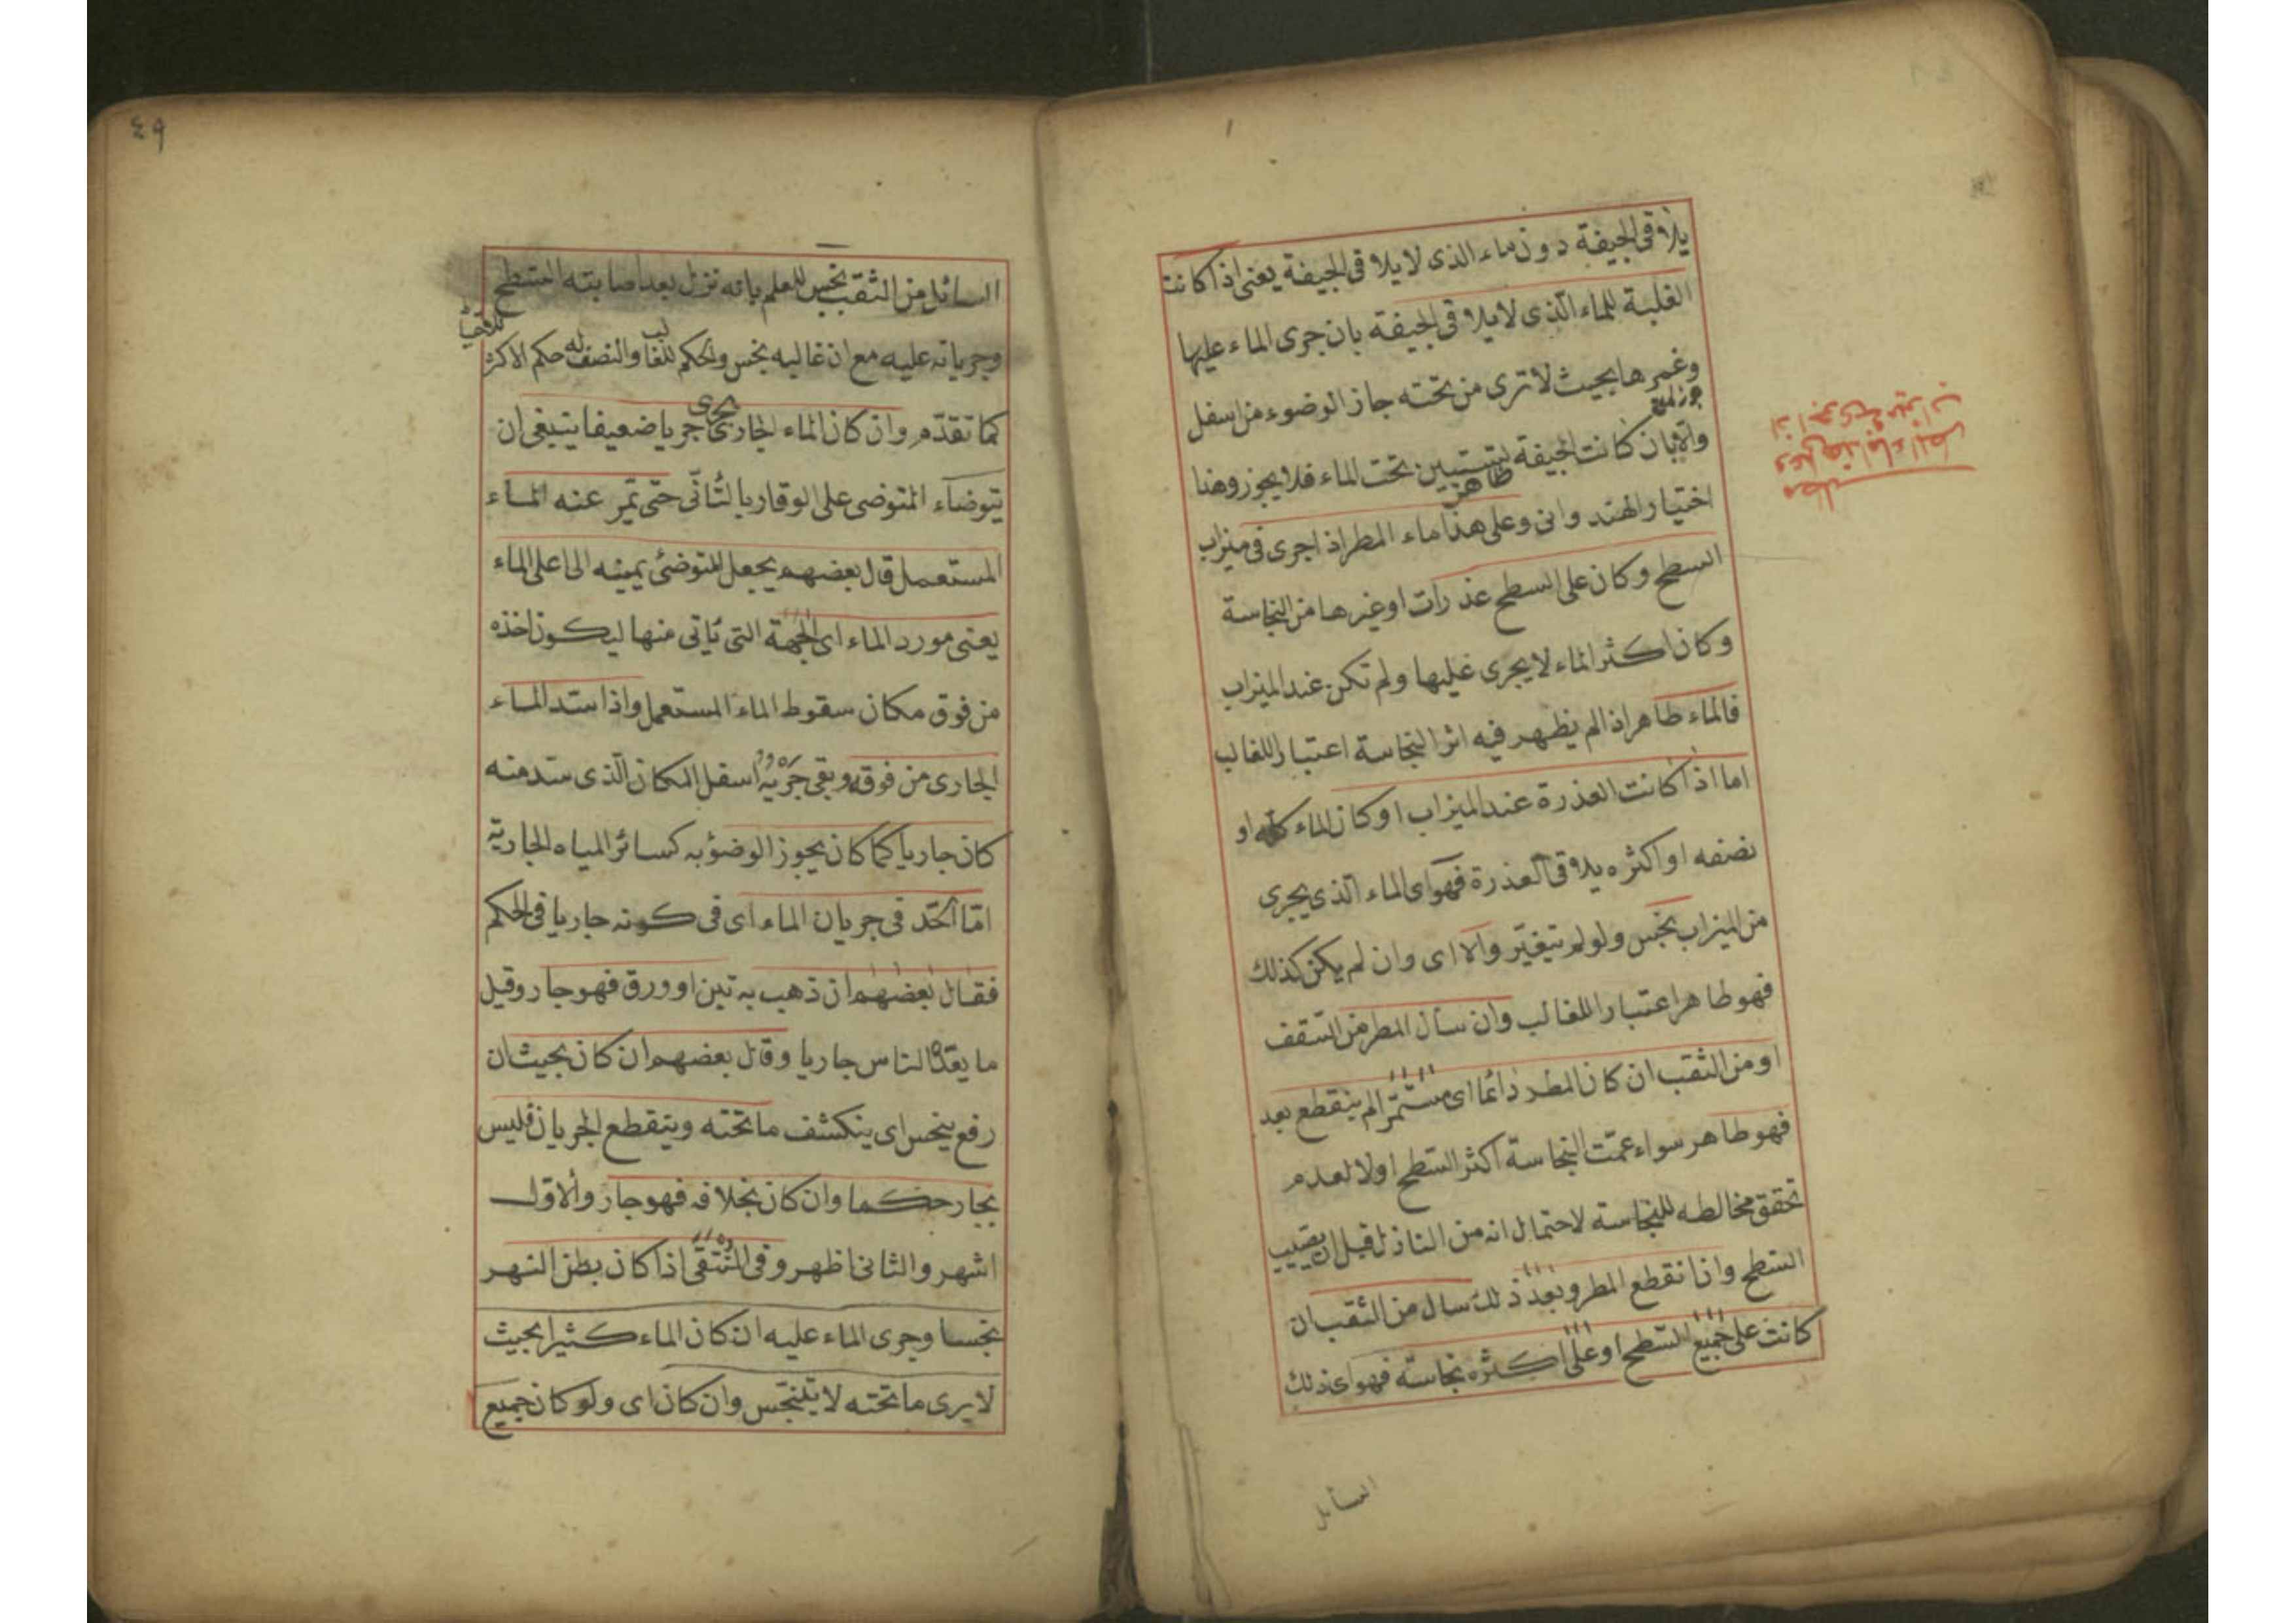 يلاقى الجيفة دون ماء الذى لا يلاقى الجيفة يعنى اذا كانت
الغلبة للماء الّذى لا يلاقى الجيفة بان جرى الماء عليها
وغمرها بحيث لا ترى من تحته جاز الوضوء من اسفل
والا بان كانت الجيفة تستبين تحت الماء فلا يجوز وهذا
ظاهر
اختيار الهندوانى وعلى هذا ماء المطر اذا جرى فى ميزاب
السطح وكان على السطح عذرات او غيرها من النجاسة
وكان اكثر الماء لا يجرى عليها ولم تكن عند الميزاب
فالماء طاهر اذا لم يظهر فيه اثر النجاسة اعتبارا للغالب
اما اذا كانت العذرة عند الميزاب او كان الماء كله او
نصفه او اكثره يلاقى العذرة فهو اى الماء الّذى يجرى
من الميزاب نجس ولو لم يتغيّر والا اى وان لم يكن كذلك
فهو طاهر اعتبارا للغالب وان سال المطر من السّقف
او من الثقب ان كان المطر دائما اى مستمّرا لم ينقطع بعد
فهو طاهر سواء عمّت النجاسة اكثر السّطح اولا لعدم
تحقق مخالطه للنجاسة لاحتمال انه من النازل قبل ان يصيب
السّطح واذا نقطع المطر وبعد ذلك سال من الثقب ان
كانت على جميع السّطح او على اكثره نجاسة فهو اى ذلك
السائل
وعلى هذا ماء المطر
اذا جرى فى ميزاب
مطلب
٤٩
السائل من الثقب نجس للعلم بانه نزل بعد اصابته السّطح
وجريانه عليه مع ان غالبه نجس والحكم للغالب والنصف له حكم الاكثر
كما تقدّم وان كان الماء الجارى يجرى جريا ضعيفا ينبغى ان
يتوضاء المتوضى على الوقار بالتّأنّى حتّى يمّر عنه الماء
المستعمل قال بعضهم يجعل المتوضئ يمينه الى اعلى الماء
يعنى مورد الماء اى الجهة التى يأتى منها ليكون اخذه
من فوق مكان سقوط الماء المستعمل واذا سّد الماء
الجارى من فوقه وبقى جريه اسفل المكان الّذى سّد منه
كان جاريا كما كان يجوز الوضؤ به كسائر المياه الجاريّة
امّا الحّد فى جريان الماء اى فى كونه جاريا فى الحكم
فقال بعضهم ان ذهب به تبن او ورق فهو جار وقيل
ما يعدّه الناس جاريا وقال بعضهم ان كان بحيث ان
رفع ينحس اى ينكشف ما تحته وينقطع الجريان فليس
بجار حكما وان كان بخلافه فهو جار والاوّل
اشهر والثانى اظهر وفى المنتقى اذا كان بطن النهر
نجسا وجرى الماء عليه ان كان الماء كثيرا بحيث
لا يرى ما تحته لا يتنجّس وان كان اى ولو كان جميع